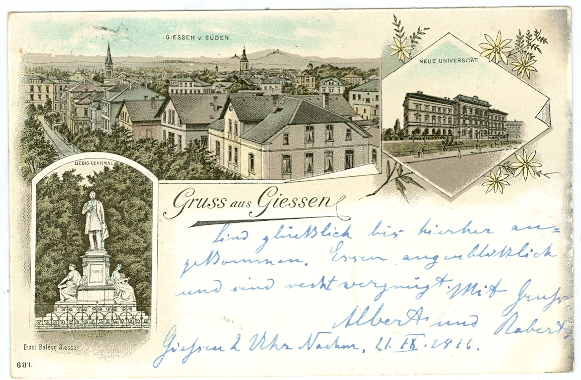 GIESSEN V. SÜDEN.
NEUE UNIVERSITÄT.
LIEBIG DENKMAL
Gruss aus Giessen
Sind glücklich bis hierher an-
gekommen. Essen augenblicklich
und sind recht vergnügt. Mit Gruß
Albert und Robert
Giessen 2 Uhr Nachm. 21. IX. 1896.
Ernst Balser Giessen
681.